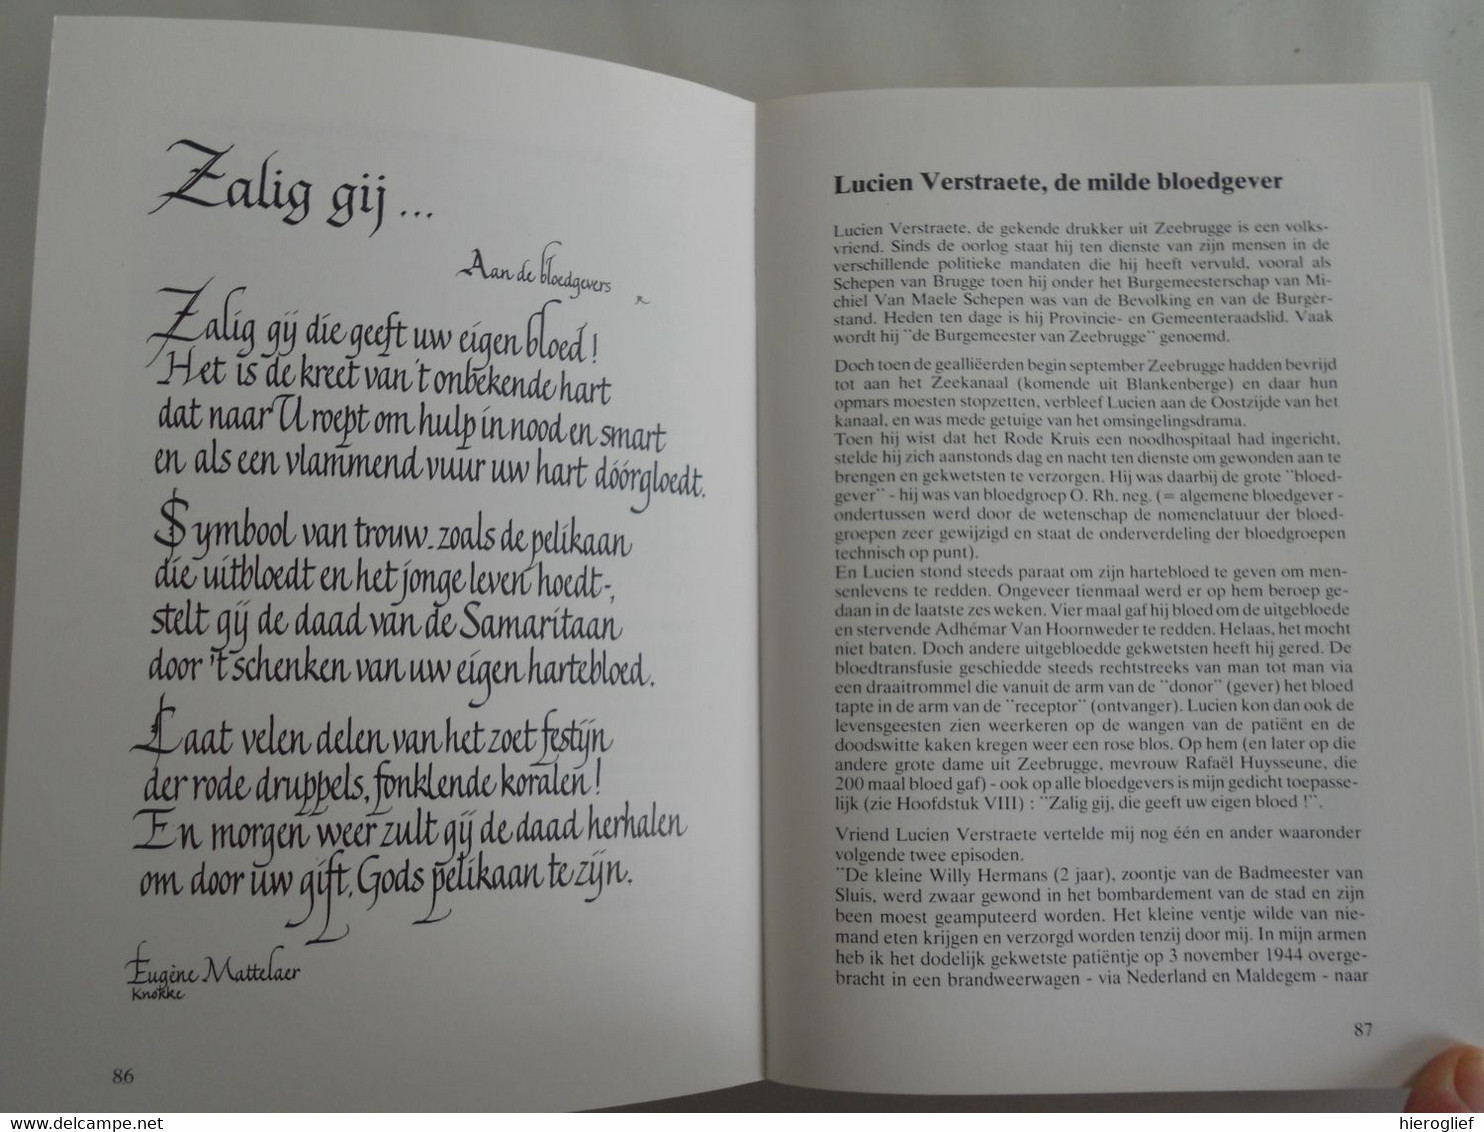 Zalig gij ...
Aan de bloedgevers
Zalig gij die geeft uw eigen bloed !
Het is de kreet van 't onbekende hart
dat naar U roept om hulp in nood en smart
en als een vlammend vuur uw hart dóórgloedt.
Symbool van trouw - zoals de pelikaan
die uitbloedt en het jonge leven hoedt -,
stelt gij de daad van de Samaritaan
door 't schenken van uw eigen hartebloed.
Laat velen delen van het zoet festijn
der rode druppels, fonklende koralen !
En morgen weer zult gij de daad herhalen
om door uw gift, Gods pelikaan te zijn.
Eugène Mattelaer
Knokke
86
Lucien Verstraete, de milde bloedgever
Lucien Verstraete, de gekende drukker uit Zeebrugge is een volks-
vriend. Sinds de oorlog staat hij ten dienste van zijn mensen in de
verschillende politieke mandaten die hij heeft vervuld, vooral als
Schepen van Brugge toen hij onder het Burgemeesterschap van Mi-
chiel Van Maele Schepen was van de Bevolking en van de Burger-
stand. Heden ten dage is hij Provincie- en Gemeenteraadslid. Vaak
wordt hij ¨de Burgemeester van Zeebrugge¨ genoemd.
Doch toen de geallieerden begin september Zeebrugge hadden bevrijd
tot aan het Zeekanaal (komende uit Blankenberge) en daar hun
opmars moesten stopzetten, verbleef Lucien aan de Oostzijde van het
kanaal, en was mede getuige van het omsingelingsdrama.
Toen hij wist dat het Rode Kruis een noodhospitaal had ingericht,
stelde hij zich aanstonds dag en nacht ten dienste om gewonden aan te
brengen en gekwetsten te verzorgen. Hij was daarbij de grote ¨bloed-
gever¨ - hij was van bloedgroep O. Rh. neg. (= algemene bloedgever -
ondertussen werd door de wetenschap de nomenclatuur der bloed-
groepen zeer gewijzigd en staat de onderverdeling der bloedgroepen
technisch op punt).
En Lucien stond steeds paraat om zijn hartebloed te geven om men-
senlevens te redden. Ongeveer tienmaal werd er op hem beroep ge-
daan in de laatste zes weken. Vier maal gaf hij bloed om de uitgebloede
en stervende Adhémar Van Hoornweder te redden. Helaas, het mocht
niet baten. Doch andere uitgebloedde gekwetsten heeft hij gered. De
bloedtransfusie geschiedde steeds rechtstreeks van man tot man via
een draaitrommel die vanuit de arm van de ¨donor¨ (gever) het bloed
tapte in de arm van de ¨receptor¨ (ontvanger). Lucien kon dan ook de
levensgeesten zien weerkeren op de wangen van de patiënt en de
doodswitte kaken kregen weer een rose blos. Op hem (en later op die
andere grote dame uit Zeebrugge, mevrouw Rafaël Huysseune, die
200 maal bloed gaf) - ook op alle bloedgevers is mijn gedicht toepasse-
lijk (zie Hoofdstuk VIII) : ¨Zalig gij, die geeft uw eigen bloed !¨.
Vriend Lucien Verstraete vertelde mij nog één en ander waaronder
volgende twee episoden.
¨De kleine Willy Hermans (2 jaar), zoontje van de Badmeester van
Sluis, werd zwaar gewond in het bombardement van de stad en zijn
been moest geamputeerd worden. Het kleine ventje wilde van nie-
mand eten krijgen en verzorgd worden tenzij door mij. In mijn armen
heb ik het dodelijk gekwetste patiëntje op 3 november 1944 overge-
bracht in een brandweerwagen - via Nederland en Maldegem - naar
87
www.delcampe.net
hieroglief